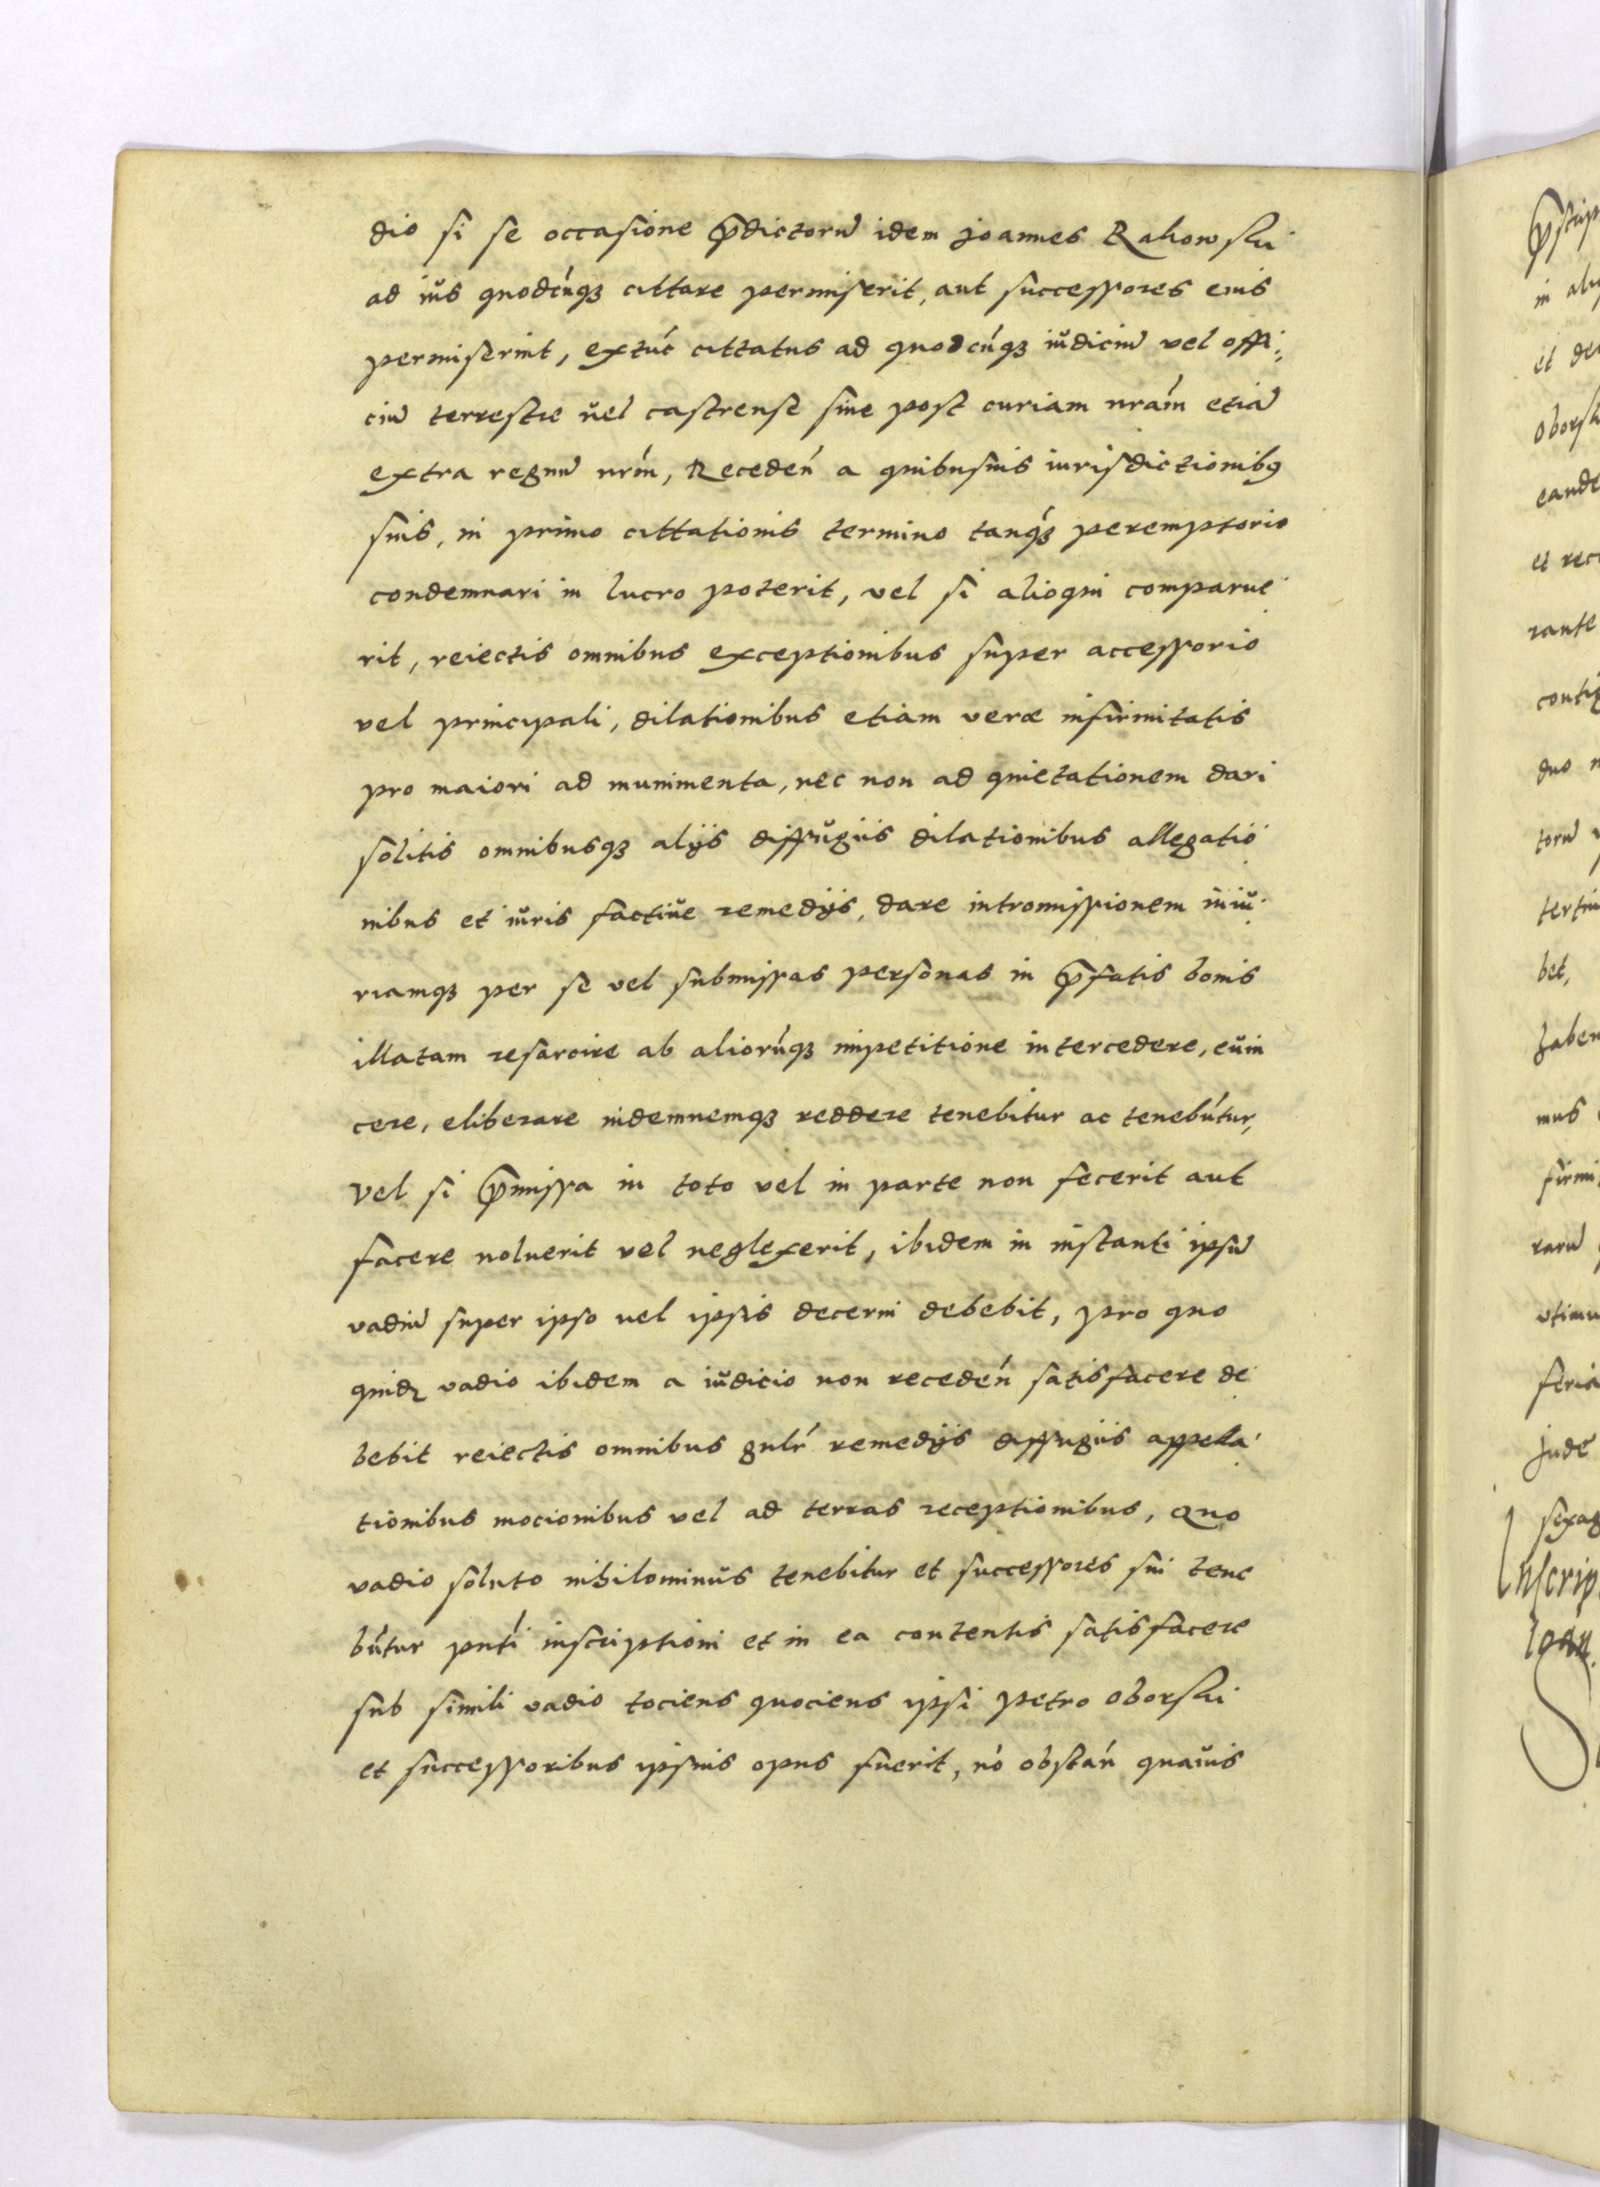 dio si se occasione p̄dictorũ idem Joannes Rakowski
ad ius quodcũq₃ cittare permiserit, aut successores eius
permiserint, extũc cittatus ad quodcũq₃ iudiciũ vel offi:
ciũ terrestre vel castrense siue post curiam nrãm etiã
extra regnũ nrm̃, Recedeń a quibusuis iurisdictionibꝯ
suis, in primo cittationis termino tanq̃₃ peremptorio
condemnari in lucro poterit, vel si alioqui comparue
rit, reiectis omnibus exceptionibus super accessorio
vel principali, dilationibus etiam veræ infirmitatis
pro maiori ad munimenta, nec non ad quietationem dari
solitis omnibusq₃ alijs diffugiis dilationibus allegatio
nibus et iuris factiue remedijs, dare intromissionem iniu
riamq₃ per se vel submissas personas in p̄fatis bonis
illatam resarcire ab aliorũq₃ impetitione intercedere, euin
cere, eliberare indemnemq₃ reddere tenebitur ac tenebũtur,
vel si p̄missa in toto vel in parte non fecerit aut
facere noluerit vel neglexerit, ibidem in instanti ipsũ
vadiũ super ipso vel ipsis decerni debebit, pro quo
quidꝫ vadio ibidem a iudicio non recedeń satisfacere de
bebit reiectis omnibus gnlr̃ remedijs diffugiis appella
tionibus mocionibus vel ad terras receptionibus, Quo
vadio soluto nihilominus tenebitur et successores sui tene
bũtur pnt̃i inscriptioni et in ea contentis satisfacere
sub simili vadio tociens quociens ipsi petro Oborski
et successoribus ipsius opus fuerit, nõ obstań quauis
in
et
Oborsk
eande
et rec
rante
contig
duo
torũ
bet,
haben
mus
firmi
rarũ
vtimu
feria
Jude
sexag
Inscrip
Ioan